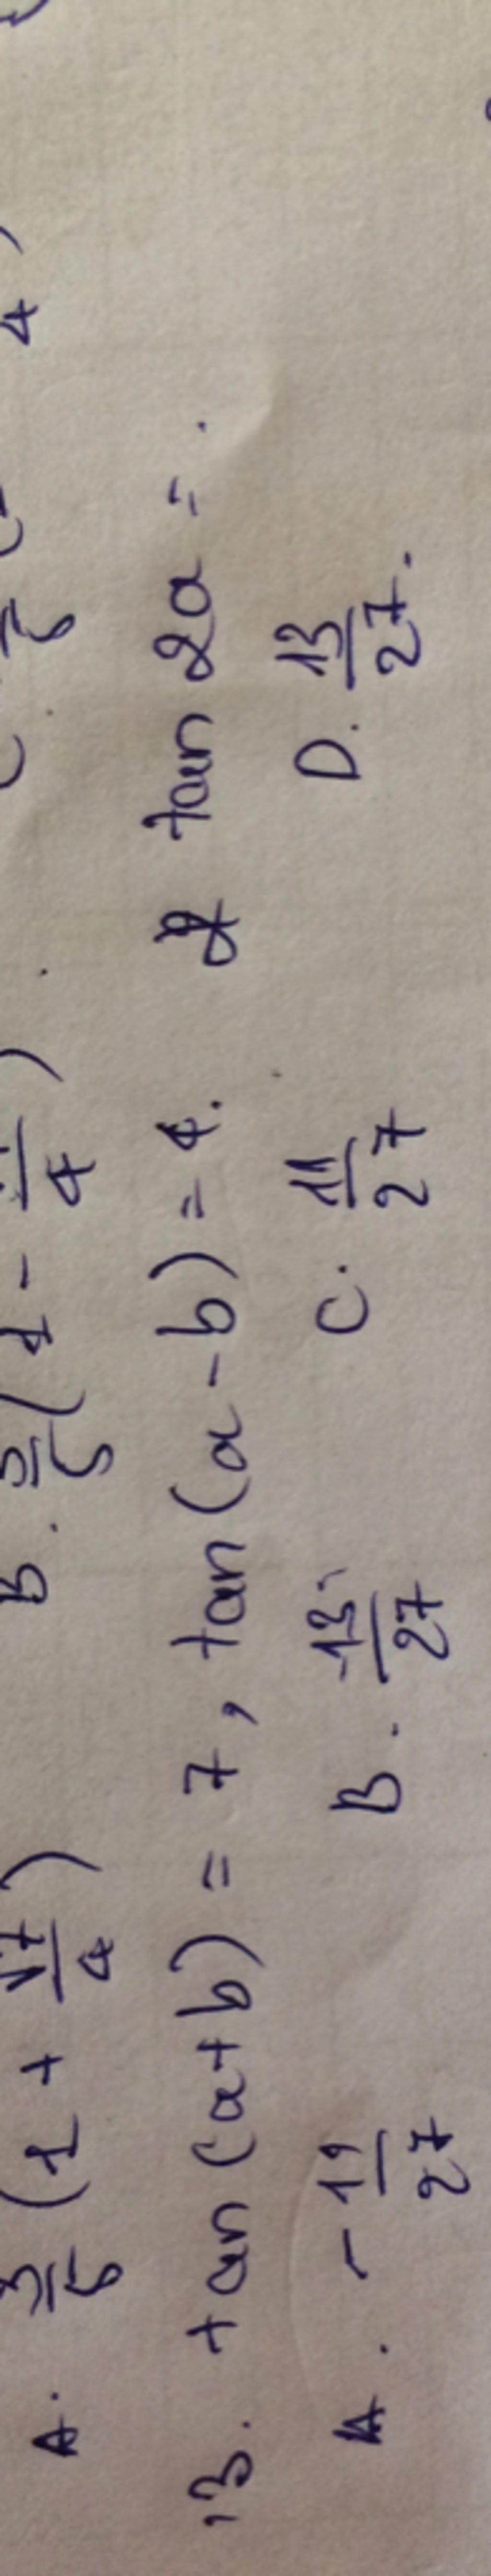 A. 3/5 (1 + √7/4) B. 3/5 (1 - /4) C.
13. tan (a+b) = 7, tan(a-b) = 4. tan 2a = .
A. -11/27 B. -13/27 C. 11/27 D. 13/27.